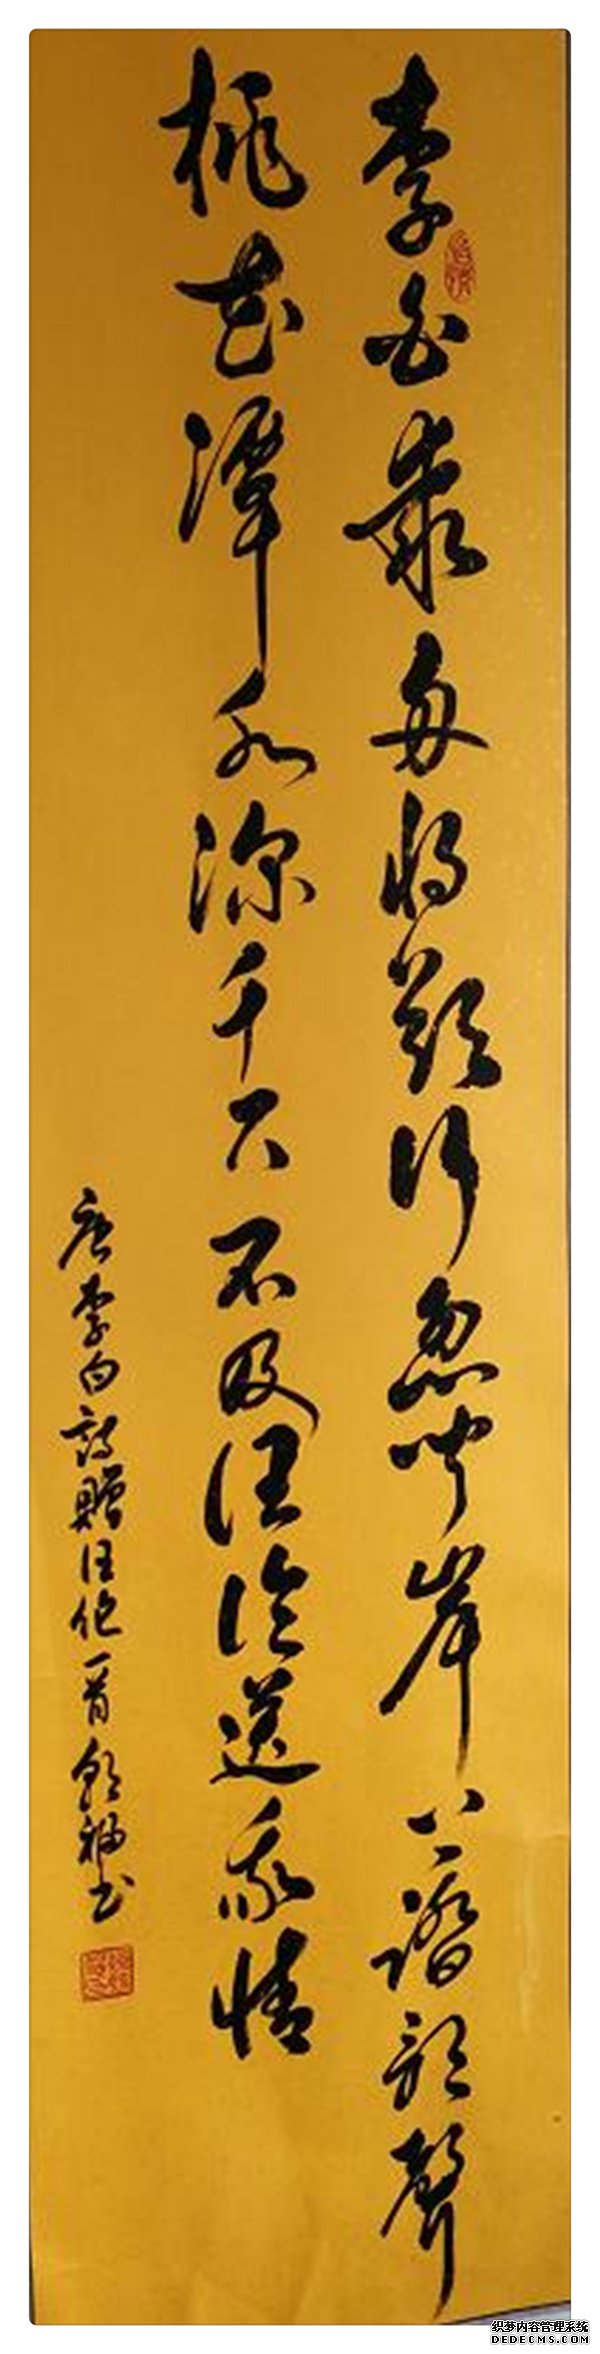 李白乘舟将欲行忽闻岸上踏歌聲
桃花潭水深千尺不及汪伦送我情
唐李白詩贈汪伦一首 福书
织梦内容管理系统
DEDECMS.COM